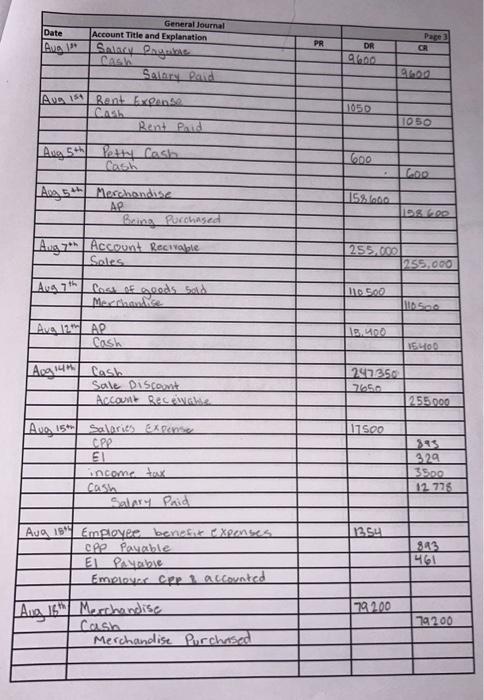 General Journal
Date Account Title and Explanation PR DR Page 3 CR
Aug 1st Salary Payable 9600
Cash 9600
Salary Paid
Aug 1st Rent Expense 1050
Cash 1050
Rent Paid
Aug 5th Petty Cash 600
Cash 600
Aug 5th Merchandise 158600
AP 158600
Being Purchased
Aug 7th Account Recivable 255,000
Sales 255,000
Aug 7th Cost of goods sold 110500
Merchandise 110500
Aug 12th AP 15,400
Cash 15400
Aug 14th Cash 247350
Sale Discount 7650
Account Receivable 255000
Aug 15th Salaries Expense 17500
CPP 893
EI 329
income tax 3500
Cash 12778
Salary Paid
Aug 15th Employee benefit expenses 1354
CPP Payable 893
EI Payable 461
Employer CPP & accounted
Aug 16th Merchandise 79200
Cash 79200
Merchandise Purchased